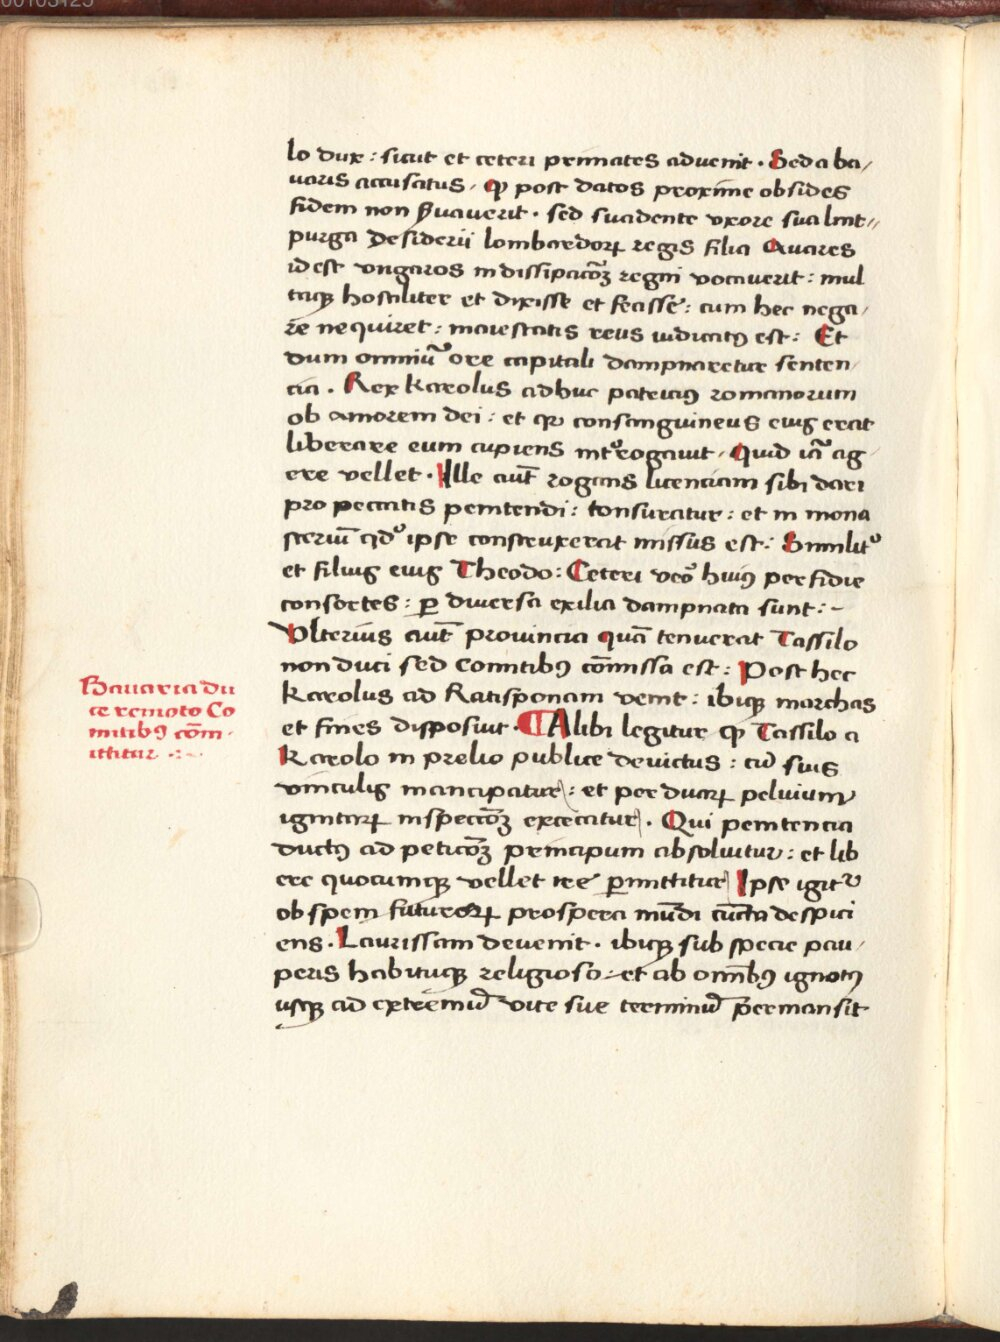 00103125
lo dux : sicut et ceteri primates advenit . Sed a ba/
uaris accusatus . qp post datos proxime obsides
fidem non seruauerit . sed suadente vxore sua liut//
purga Desiderii lombardoꝝ regis filia Auares
id est vngaros in dissipacōꝫ regni vocauerit : mul
taqꝫ hostiliter et dixisse et fecisse : cum hec nega/
re nequiret : maiestatis reus iudicatꝯ est : Et
dum omniū ore capitali dampnaretur senten/
cia . Rex Karolus adhuc patriciꝯ romanorum
ob amorem dei : et qꝛ consanguineus eiuꝯ erat
liberare eum cupiens intͬogauit . Quid iā ag
ere vellet . Ille aut̄ rogans licenciam sibi dari
pro peccatis penitendi : tonsuratur : et in mona
steriū qdͦ ipse construxerat missus est : Similitͬ
et filiuꝯ eiuꝯ Theodo : Ceteri vͦo huiꝯ perfidie
consortes : ꝑ diuersa exilia dampnata sunt : ~
Vlterius aut̄ prouincia quā tenuerat Tassilo
non duci sed Comitibꝯ cōmissa est : Post hec
Karolus ad Ratisponam venit : ibiqꝫ marchas
et fines disposuit . ¶ Alibi legitur qp Tassilo a
Karolo in prelio publice deuictus : cū suis
vinculis mancipatur : et per duaꝝ peluium
ignitaꝝ inspeccōꝫ excecatur . Qui penitencia
ductꝯ ad peticōꝫ principum absoluitur : et lib
ere quocumqꝫ vellet ire ꝑmittitur Ipse igitͬ
ob spem futuroꝝ prospera mūdi cūcta despici
ens . Laurissam deuenit . ibiqꝫ sub specie pau/
peris habituqꝫ religioso : et ab omībꝯ ignotꝯ
usqꝫ ad extremū vite sue terminū permansit
Bauaria du
ce remoto Co
mitibꝯ cōm.
ittitur .:~